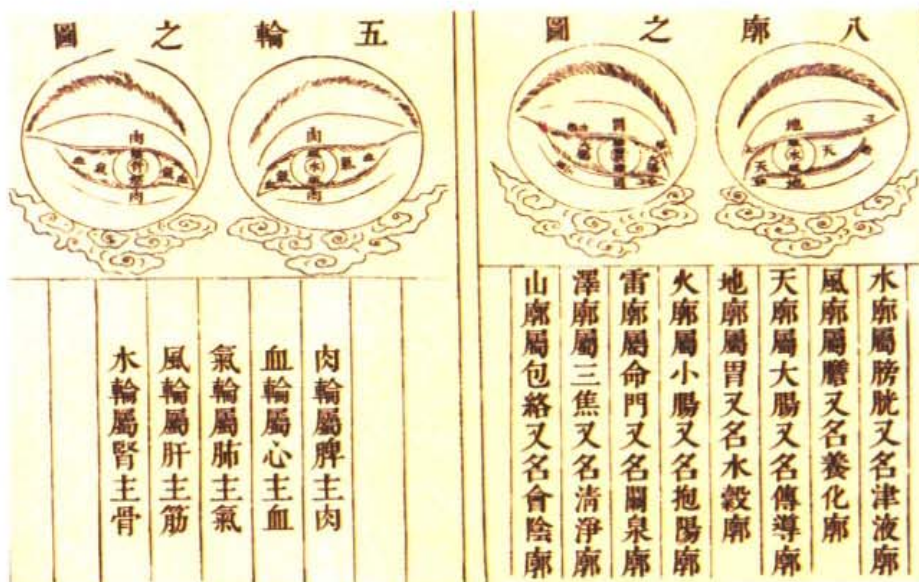 八廓之圖
地
天
水
天
地
胃
水廓屬膀胱又名津液廓
風廓屬膽又名養化廓
天廓屬大腸又名傳導廓
地廓屬胃又名水穀廓
火廓屬小腸又名抱陽廓
雷廓屬命門又名關泉廓
澤廓屬三焦又名清淨廓
山廓屬包絡又名會陰廓
五輪之圖
肉
血
氣
水
氣
血
肉
肉
血
氣
肉
肉輪屬脾主肉
血輪屬心主血
氣輪屬肺主氣
風輪屬肝主筋
水輪屬腎主骨